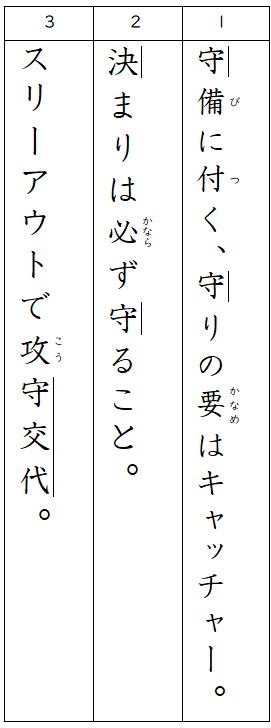 1
守備に付く、守りの要はキャッチャー。
び
つ
かなめ
2
決まりは必ず守ること。
かなら
3
スリーアウトで攻守交代。
こう